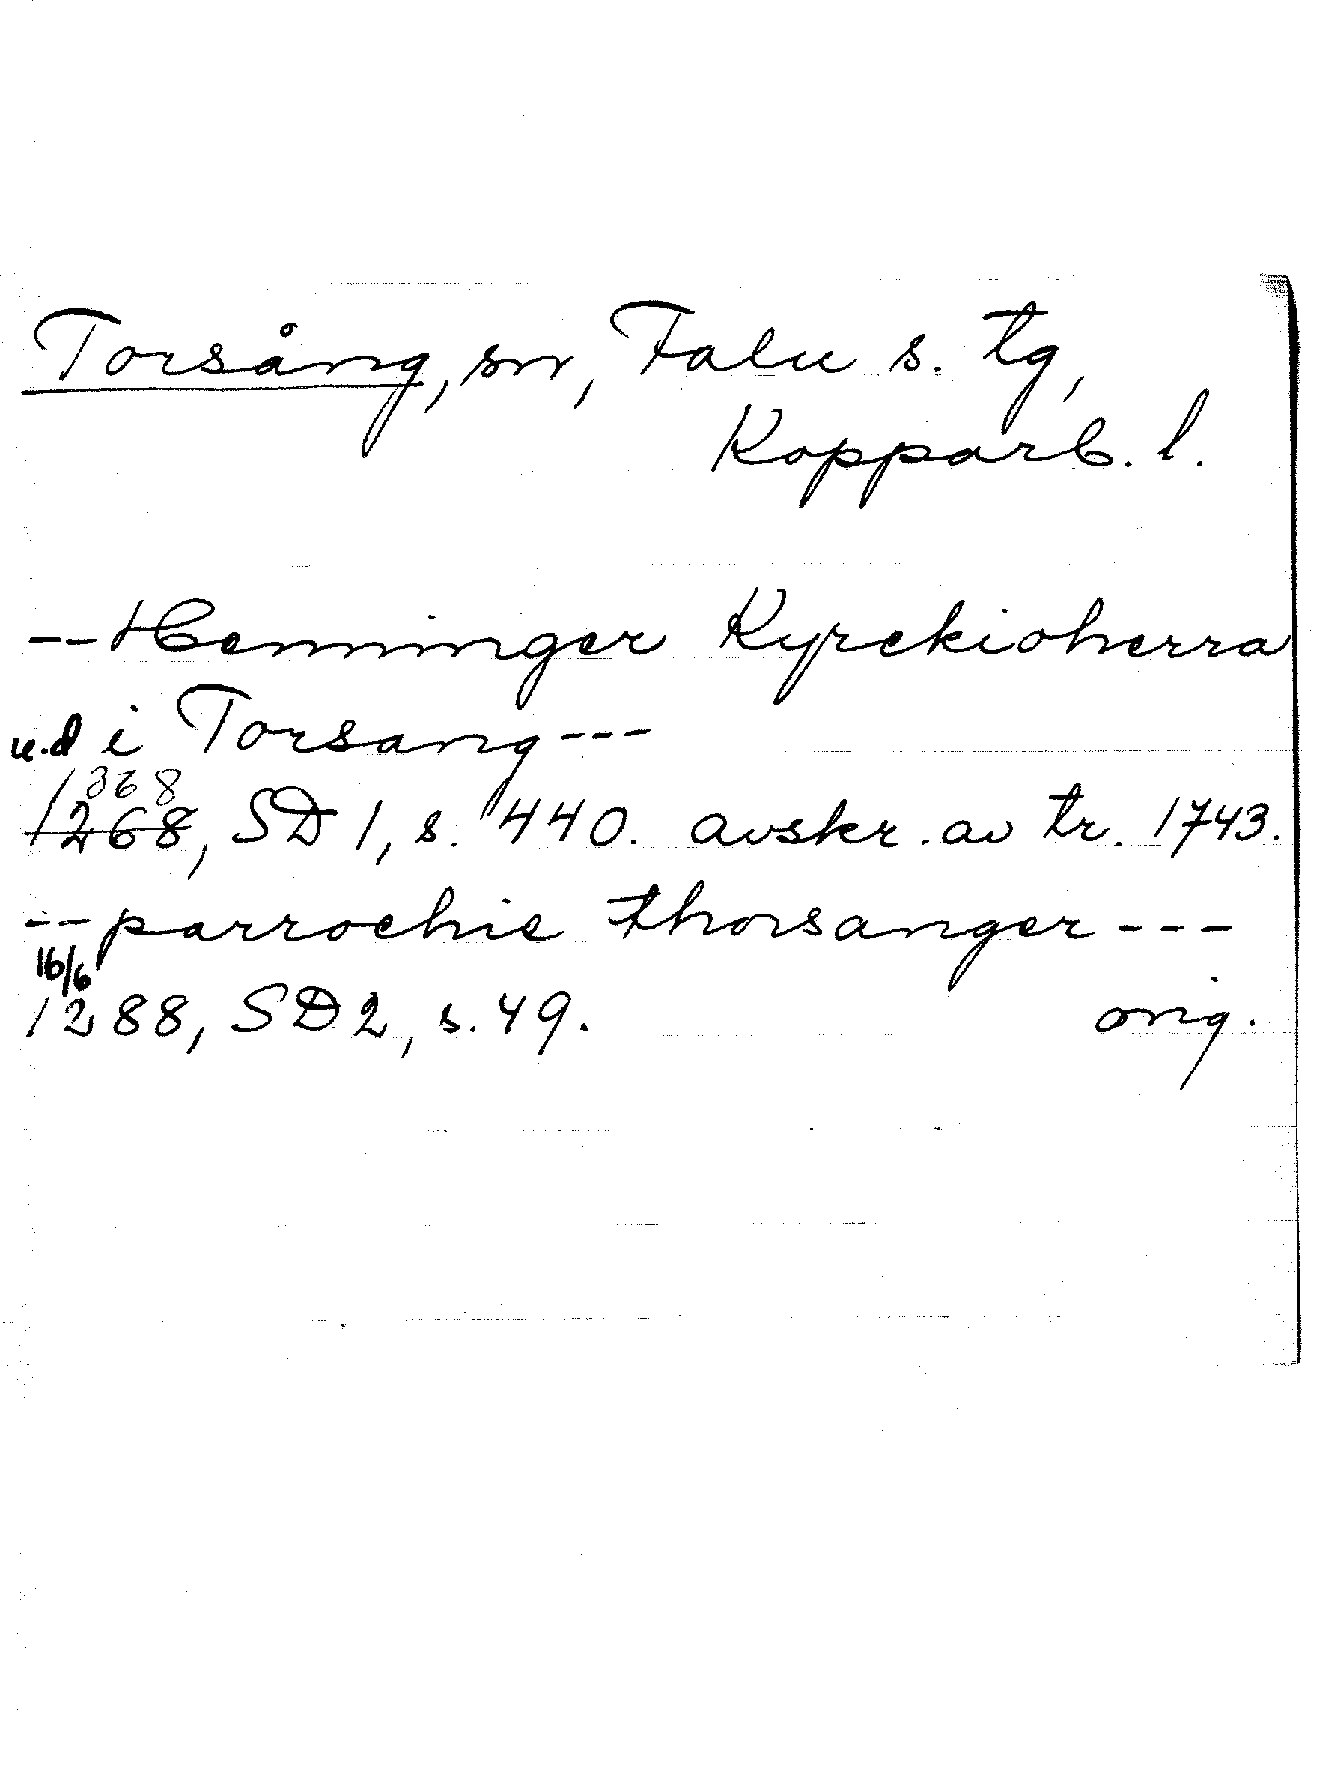 Torsång, sn, Falu s. tg,
Kopparb. l.
-- Henninger Kyrekioherra
u.d i Torsang ---
1368
1268, SD 1, s. 440. avskr. av tr. 1743.
-- parrochie thorsanger ---
16/6
1288, SD 2, s. 49. orig.